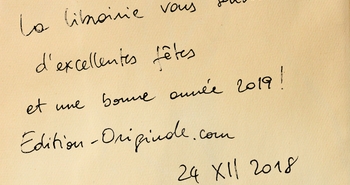 La librairie vous
d'excellentes fêtes
et une bonne année 2019 !
Edition-Originale.com
24 XII 2018